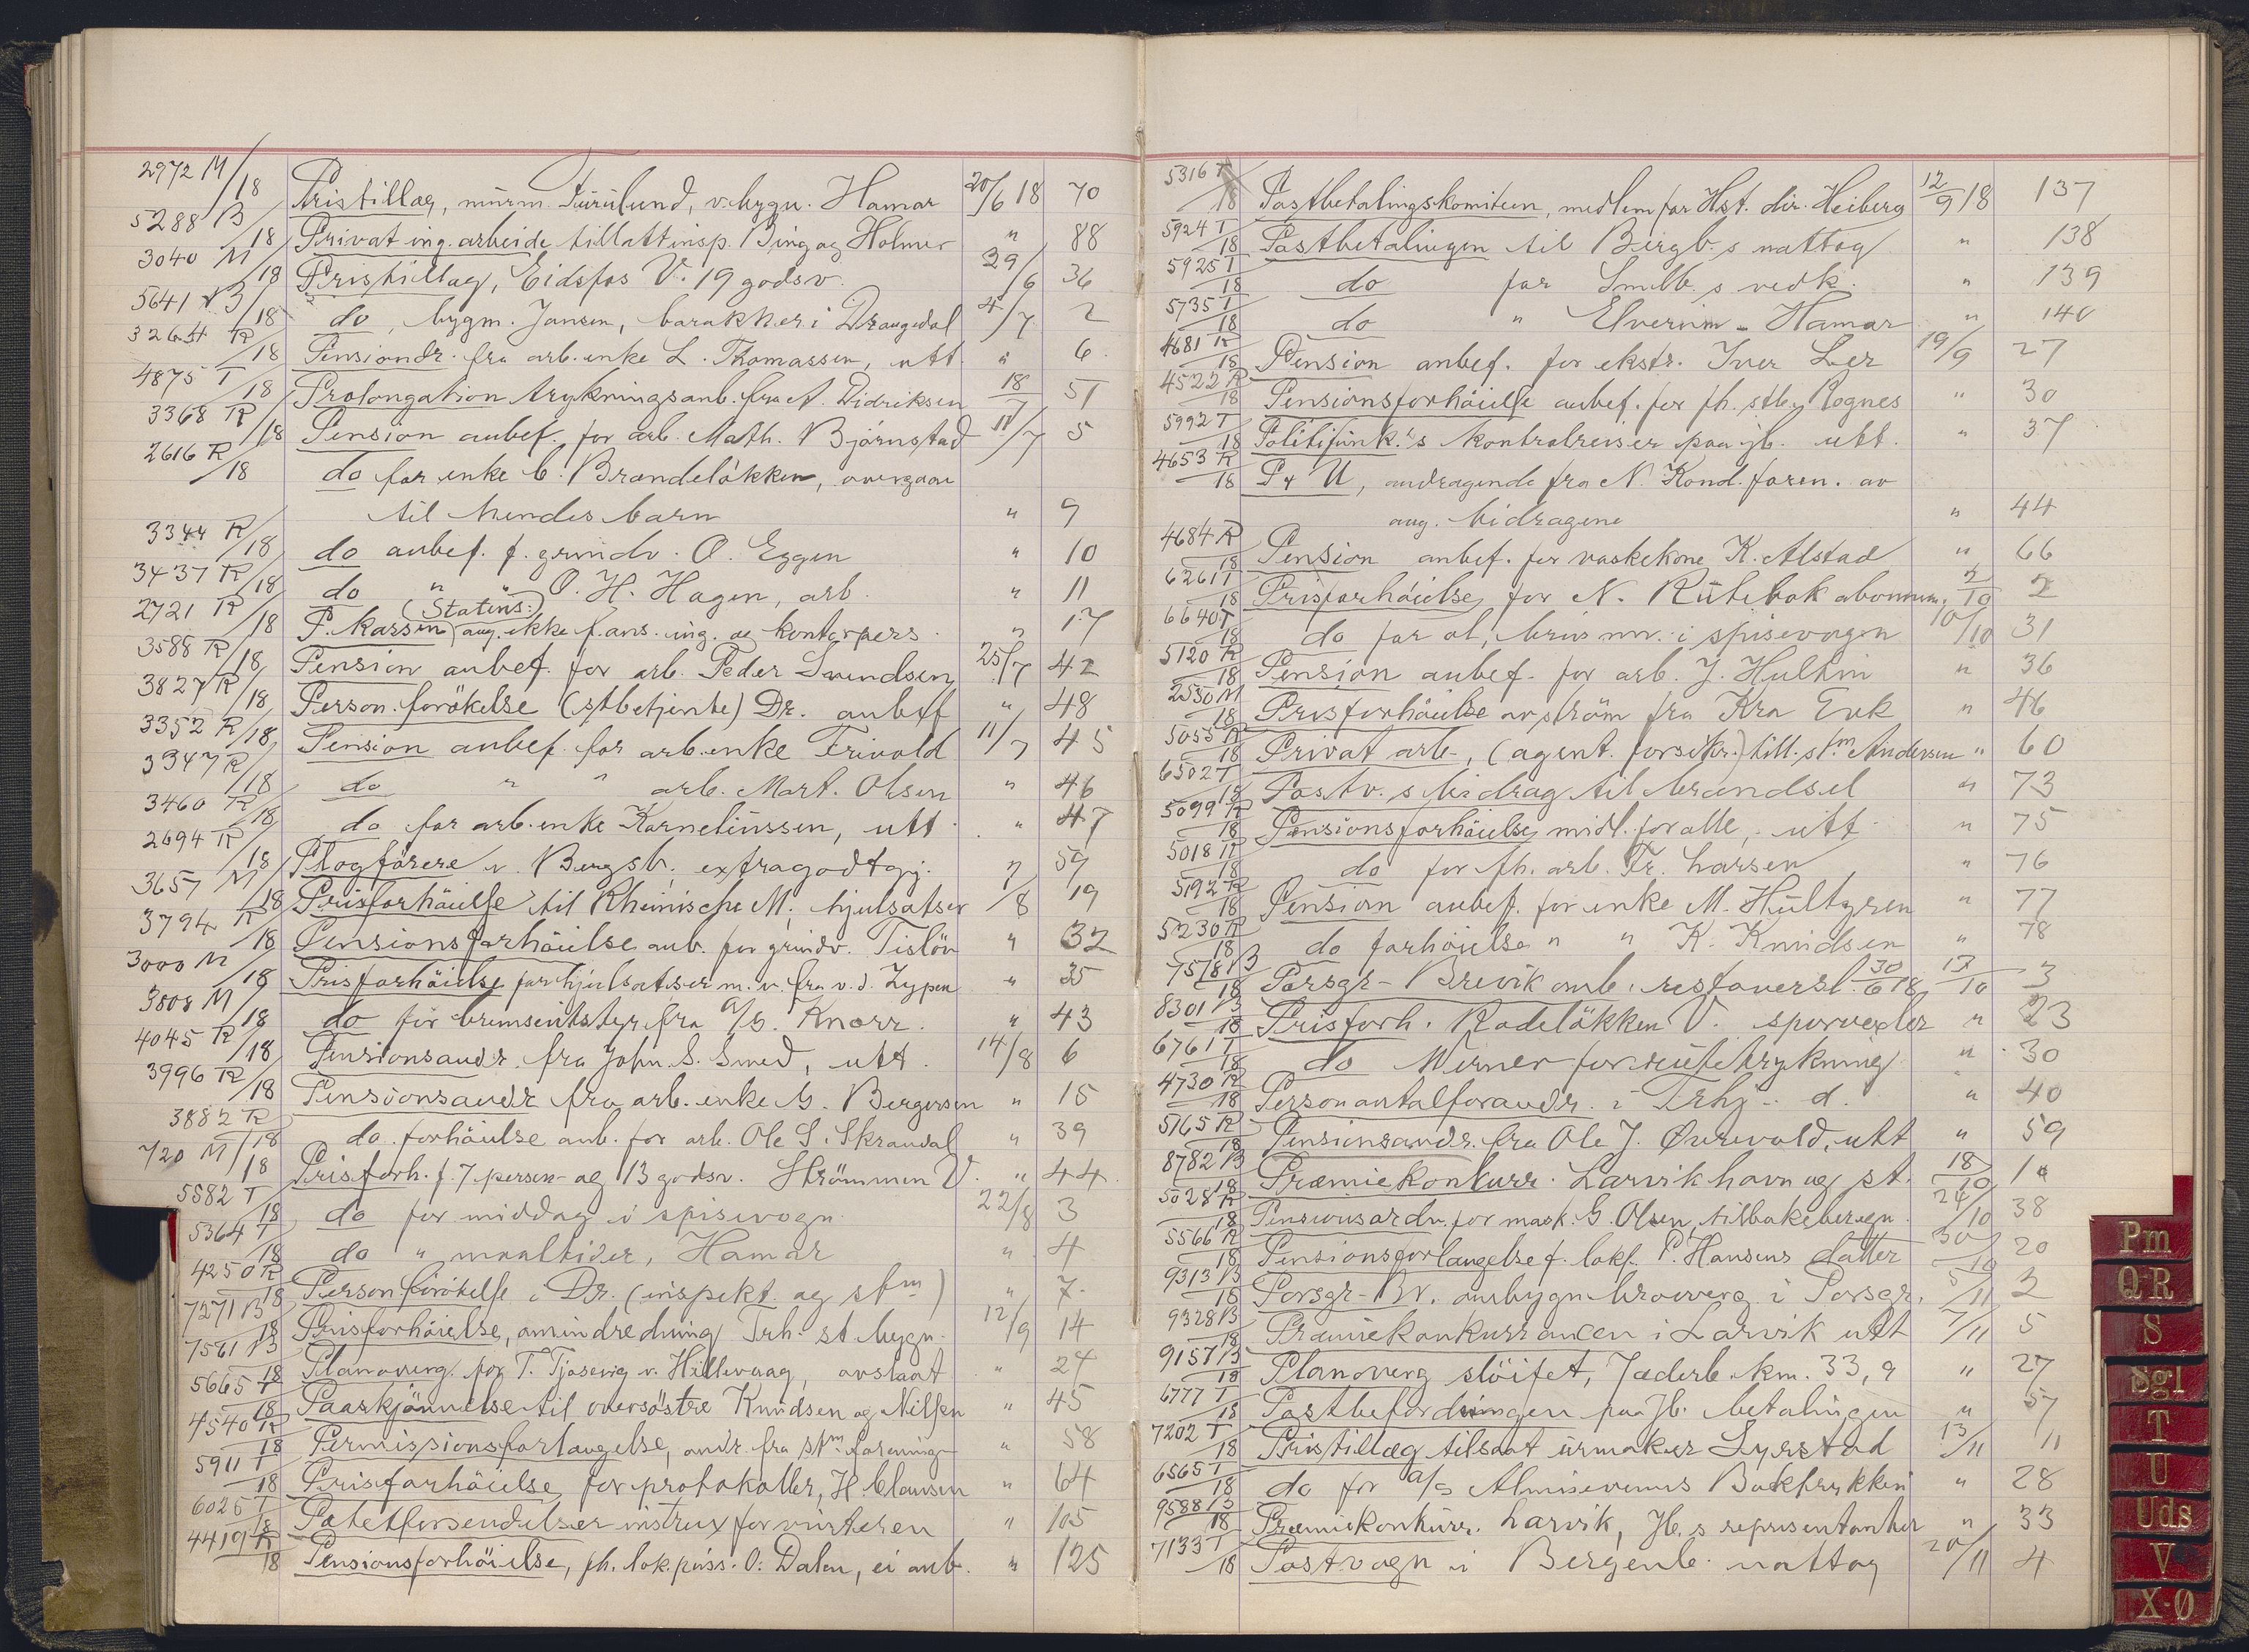 2972 M/18 Pristillæg, murm. Furulund, v. bygn. Hamar 20/6 18 70
5288 B/18 Privat ing. arbeide tillatt insp. Bing og Holmer " 88
3040 M/18 Pristillæg, Eidsfos V. 19 godsv. 29/6 36
5641 B/18 do, bygm. Jansen, barakker i Drangedal 4/7 2
3264 R/18 Pensiondr. fra arb. enke L. Thomassen, utt. " 6
4875 T/18 Prolongation trykningsanb. fra A. Didriksen 18/7 51
3368 R/18 Pension anbef. for arb. Math. Björnstad 11/7 5
2616 R/18 do for enke C. Brandeløkken, overgaar
til hendes barn " 9
3344 R/18 do anbef. f. grindv. O. Eggen " 10
3437 R/18 do " " O. H. Hagen, arb. " 11
2721 R/18 P. kassen (Statens:) aug. ikke f. ans. ing. og kontorpers. " 17
3588 R/18 Pension anbef. for arb. Peder Svendsen 25/7 42
3827 R/18 Person. forökelse (stbetjente) Dr. anbef " 48
3352 R/18 Pension anbef. for arb. enke Frivold 11/7 45
3347 R/18 do " " arb. Mart. Olsen " 46
3460 R/18 do for arb. enke Kornelinssen, utt. " 47
2694 R/18 Plogförere v. Bergsb., extragodtgj. " 59
3657 M/18 Prisforhöielse til Rheinische M. hjulsatser 7/8 19
3794 R/18 Pensionsforhöielse anb. for grindv. Tislöv " 32
3000 M/18 Prisforhöielse for hjulsatser m.v. fra v.d. Zypen " 35
3808 M/18 do for bremseutstyr fra A/G. Knorr. " 43
4045 R/18 Pensionsandr. fra John S. Smed, utt. 14/8 6
3996 R/18 Pensionsandr fra arb. enke G. Bergersen " 15
3882 R/18 do. forhöielse anb. for arb. Ole S. Skrandal " 39
720 M/18 Prisforh. f. 7 person- og 13 godsv. Strömmen V. " 44
5582 T/18 do for middag i spisevogn. 22/8 3
5364 T/18 do " maaltider, Hamar " 4
4250 R/18 Person forökelse i Dr. (inspekt. og stm) " 7.
7271 B/18 Prisforhöielse, omindredning Trh. st. bygn. 12/9 14
7561 B/18 Planoverg. for T. Tjosevig v. Hillevaag, avslaat " 24
5665 T/18 Paaskjönnelse til oversöstre Knudsen og Nilsen " 45
4540 R/18 Permissionsforlængelse, andr. fra stm. forening " 58
5911 T/18 Prisforhöielse for protokoller, H. Clausen " 64
6025 T/18 Paketforsendelser instrux for visiteren " 105
4419 R/18 Pensionsforhöielse, fh. lok. puss. O. Dalen, ei anb. " 125
5316 T/18 Postbetalingskomiteen, medlem for Hst. dir. Heiberg 12/9 18 137
5924 T/18 Postbetalingen til Bergb.s nattog " 138
5925 T/18 do for Smlb.s vedk. " 139
5735 T/18 do " Elverum - Hamar " 140
4681 R/18 Pension anbef. for ekstr. Iver Ler 19/9 27
4522 R/18 Pensionsforhöielse anbef. for fh. stb. Rognes " 30
5992 T/18 Politifunk.s kontrolreiser paa jb. utt. " 37
4653 R/18 P & U, andragende fra N. Kond. foren. av
aug. bidragene " 44
4684 R/18 Pension anbef. for vaskekone K. Alstad " 66
6261 T/18 Prisforhöielse for N. Rutebok abonnem. 2/10 2
6640 T/18 do for öl, brus m.v. i spisevogn 10/10 31
5120 R/18 Pension anbef. for arb. J. Hultin " 36
2550 M/18 Prisforhöielse av ström fra Kra Evk " 46
5055 R/18 Privat arb., (agent. forsikr.) till. stm Andersen " 60
6502 T/18 Postv.s bidrag til brændsel " 73
5099 R/18 Pensionsforhöielse midl. for alle, utt " 75
5018 R/18 do for fh. arb. Fr. Larsen " 76
5192 R/18 Pension anbef. for enke M. Hultgren " 77
5230 R/18 do forhöielse " " K. Knudsen " 78
7578 B/18 Porsgr - Brevik anb. restoverst. 30/6 18 17/10 3
8301 B/18 Prisforh. Rodeløkken V. sporvexler " 23
6761 T/18 do Werner for rutetrykning " 30
4730 R/18 Personantalforandr. i Trhj. d. " 40
5165 R/18 Pensionsandr. fra Ole J. Øvrevold, utt " 59
8782 B/18 Præmiekonkurr. Larvik havn og st. 18/10 10
5028 R/18 Pensionsordn. for mask. G. Olsen, tilbakeberegn. 24/10 38
5566 R/18 Pensionsforlængelse f. lokf. P. Hansens datter 30/10 20
9313 B/18 Porsgr - Br. ombygn broverg i Porsgr. 5/11 2
9328 B/18 Præmiekonkurrancen i Larvik utt 7/11 5
9157 B/18 Planoverg slöifet, Jæderb. km. 33,9 " 27
6777 T/18 Postbefordringen paa Jb. betalingen " 57
7202 T/18 Pristillæg tilsaat urmaker Lyrstad 13/11 11
6565 T/18 do for A/S Almuevennens Boktrykkeri " 28
9588 B/18 Præmiekonkurr. Larvik, Jb.s representanter " 33
7133 T/18 Postvogn i Bergenb. nattog 20/11 4
Pm
QR
S
Sgl
T
U
Uds
V
X-Ø